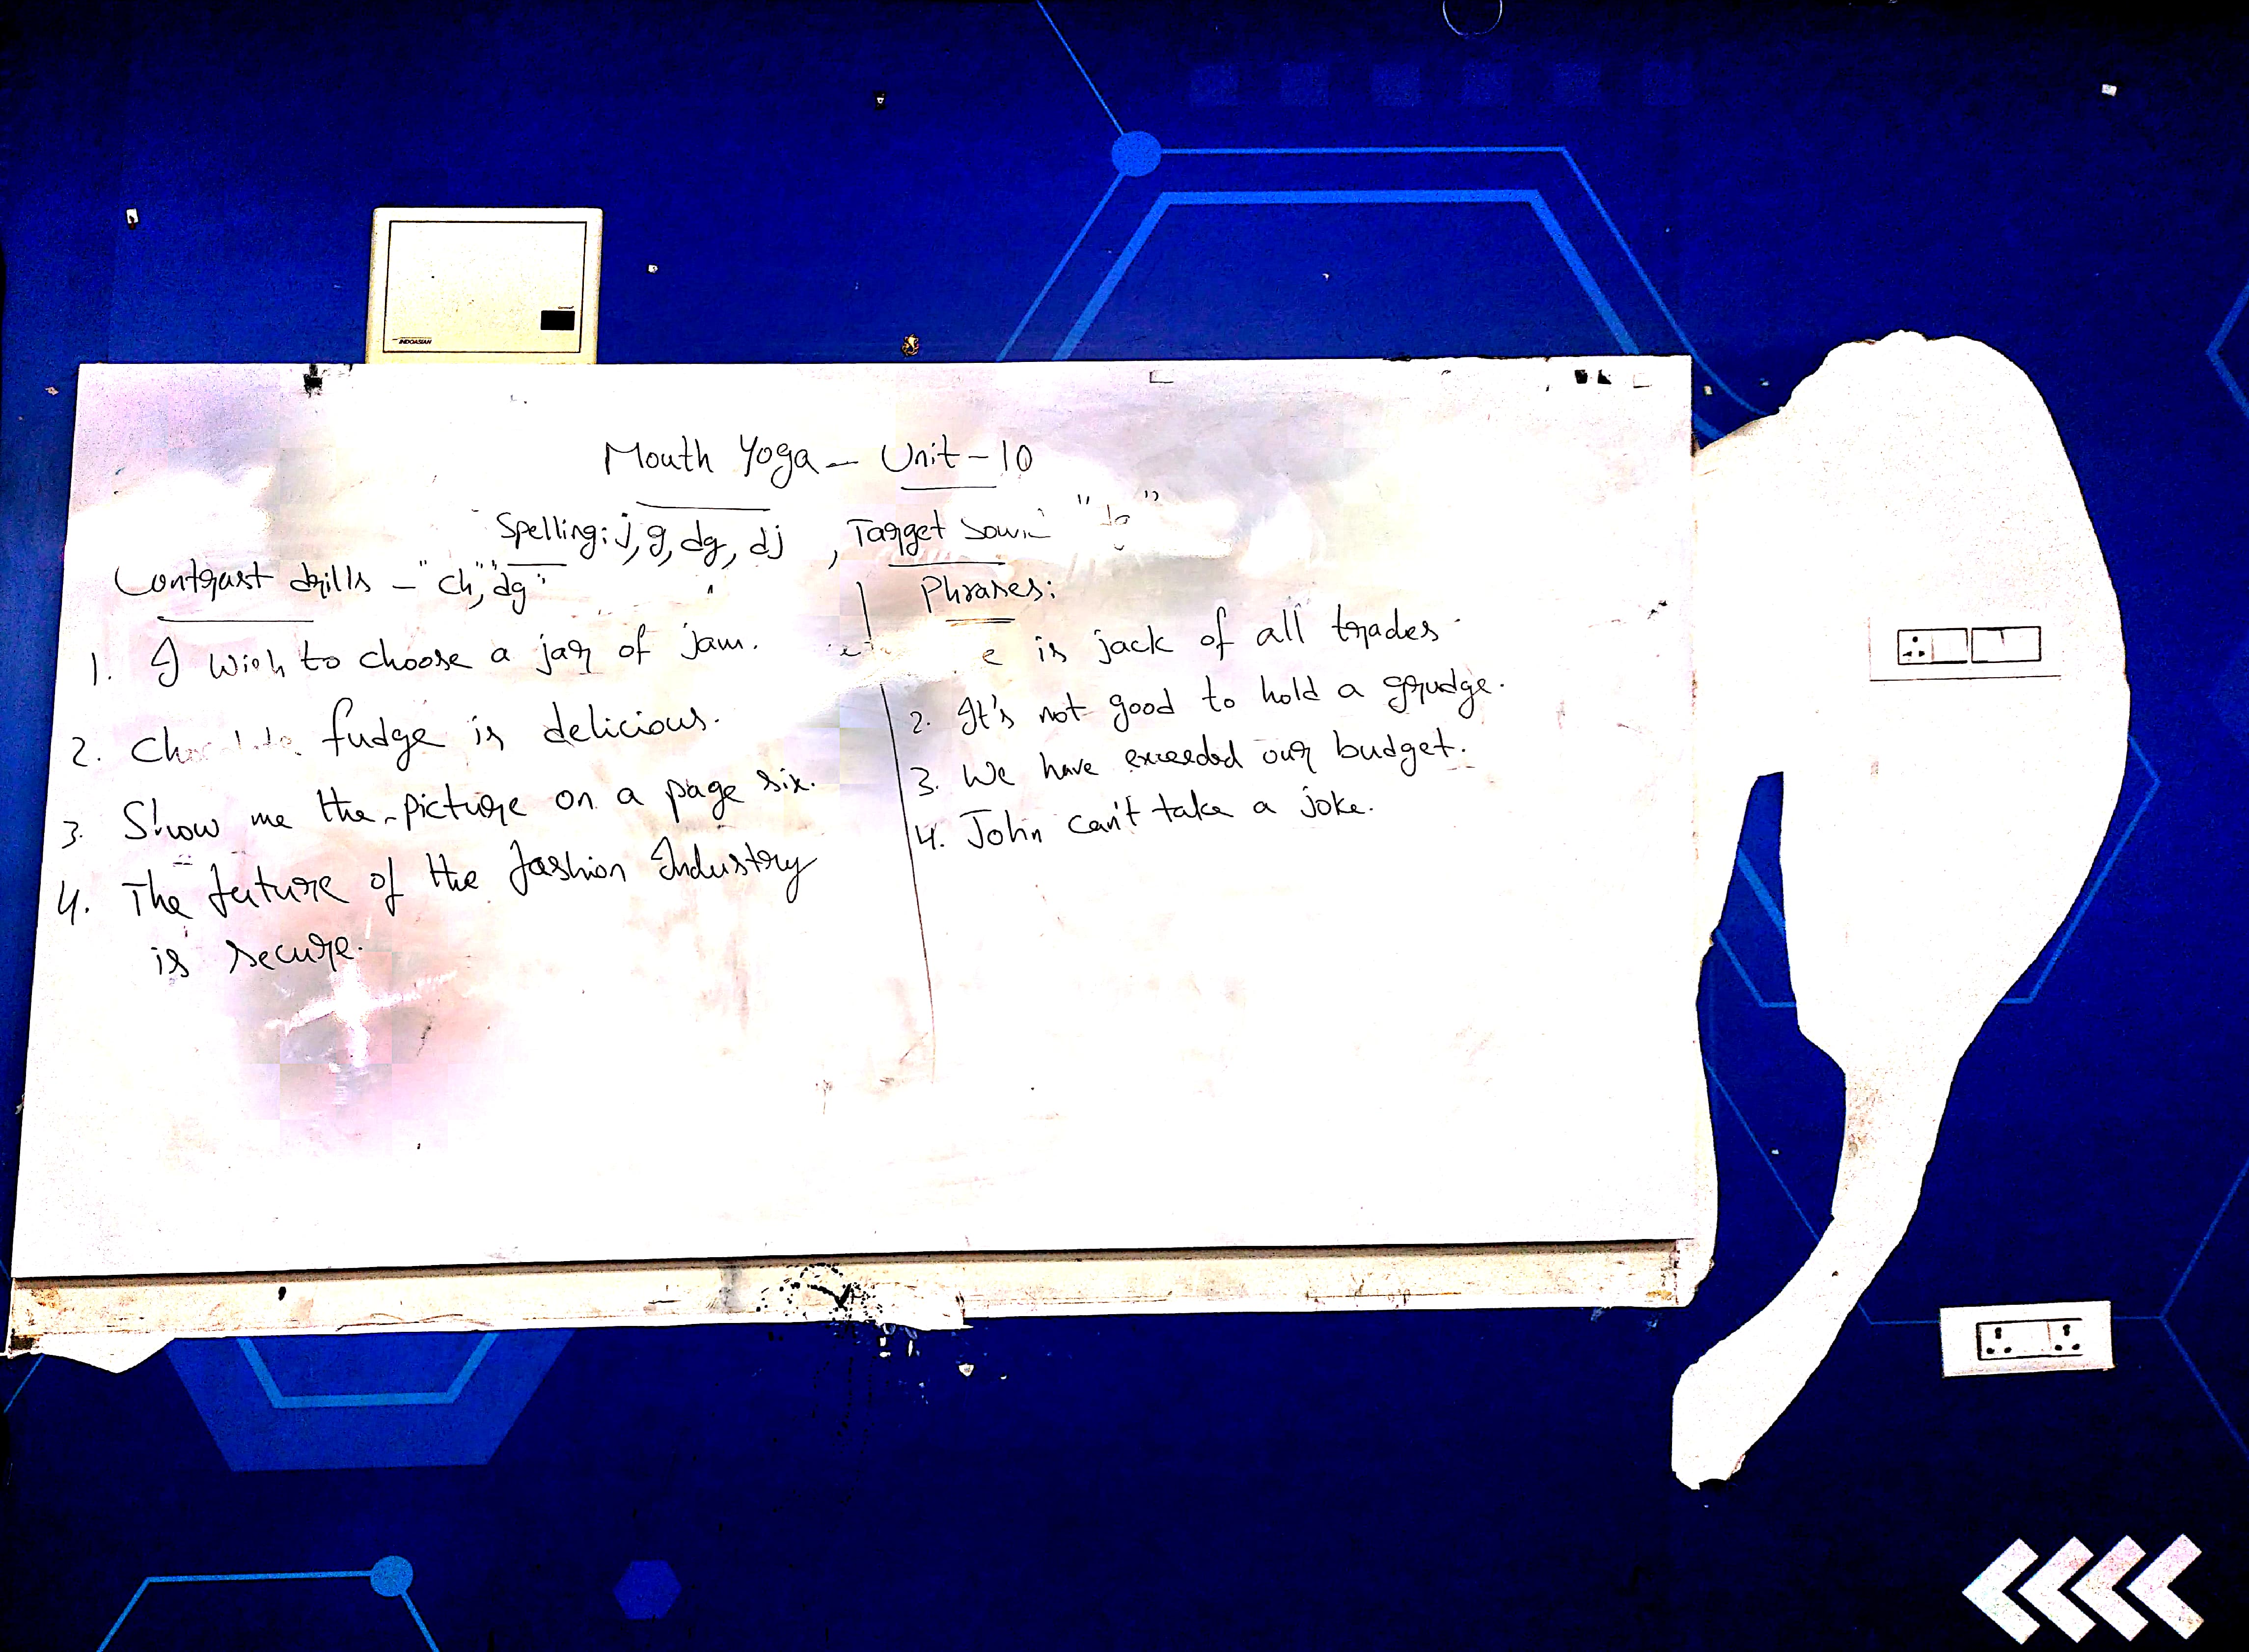 INDOASIAN
Mouth Yoga - Unit - 10
Spelling: j, g, dg, dj , Target Sound "dg"
Contrast drills - "ch", "dg"
1. I wish to choose a jar of jam.
2. Chocolate fudge is delicious.
3. Show me the picture on a page six.
4. The future of the fashion Industry
is secure.
Phrases:
is jack of all trades.
2. It's not good to hold a grudge.
3. We have exceeded our budget.
4. John can't take a joke.